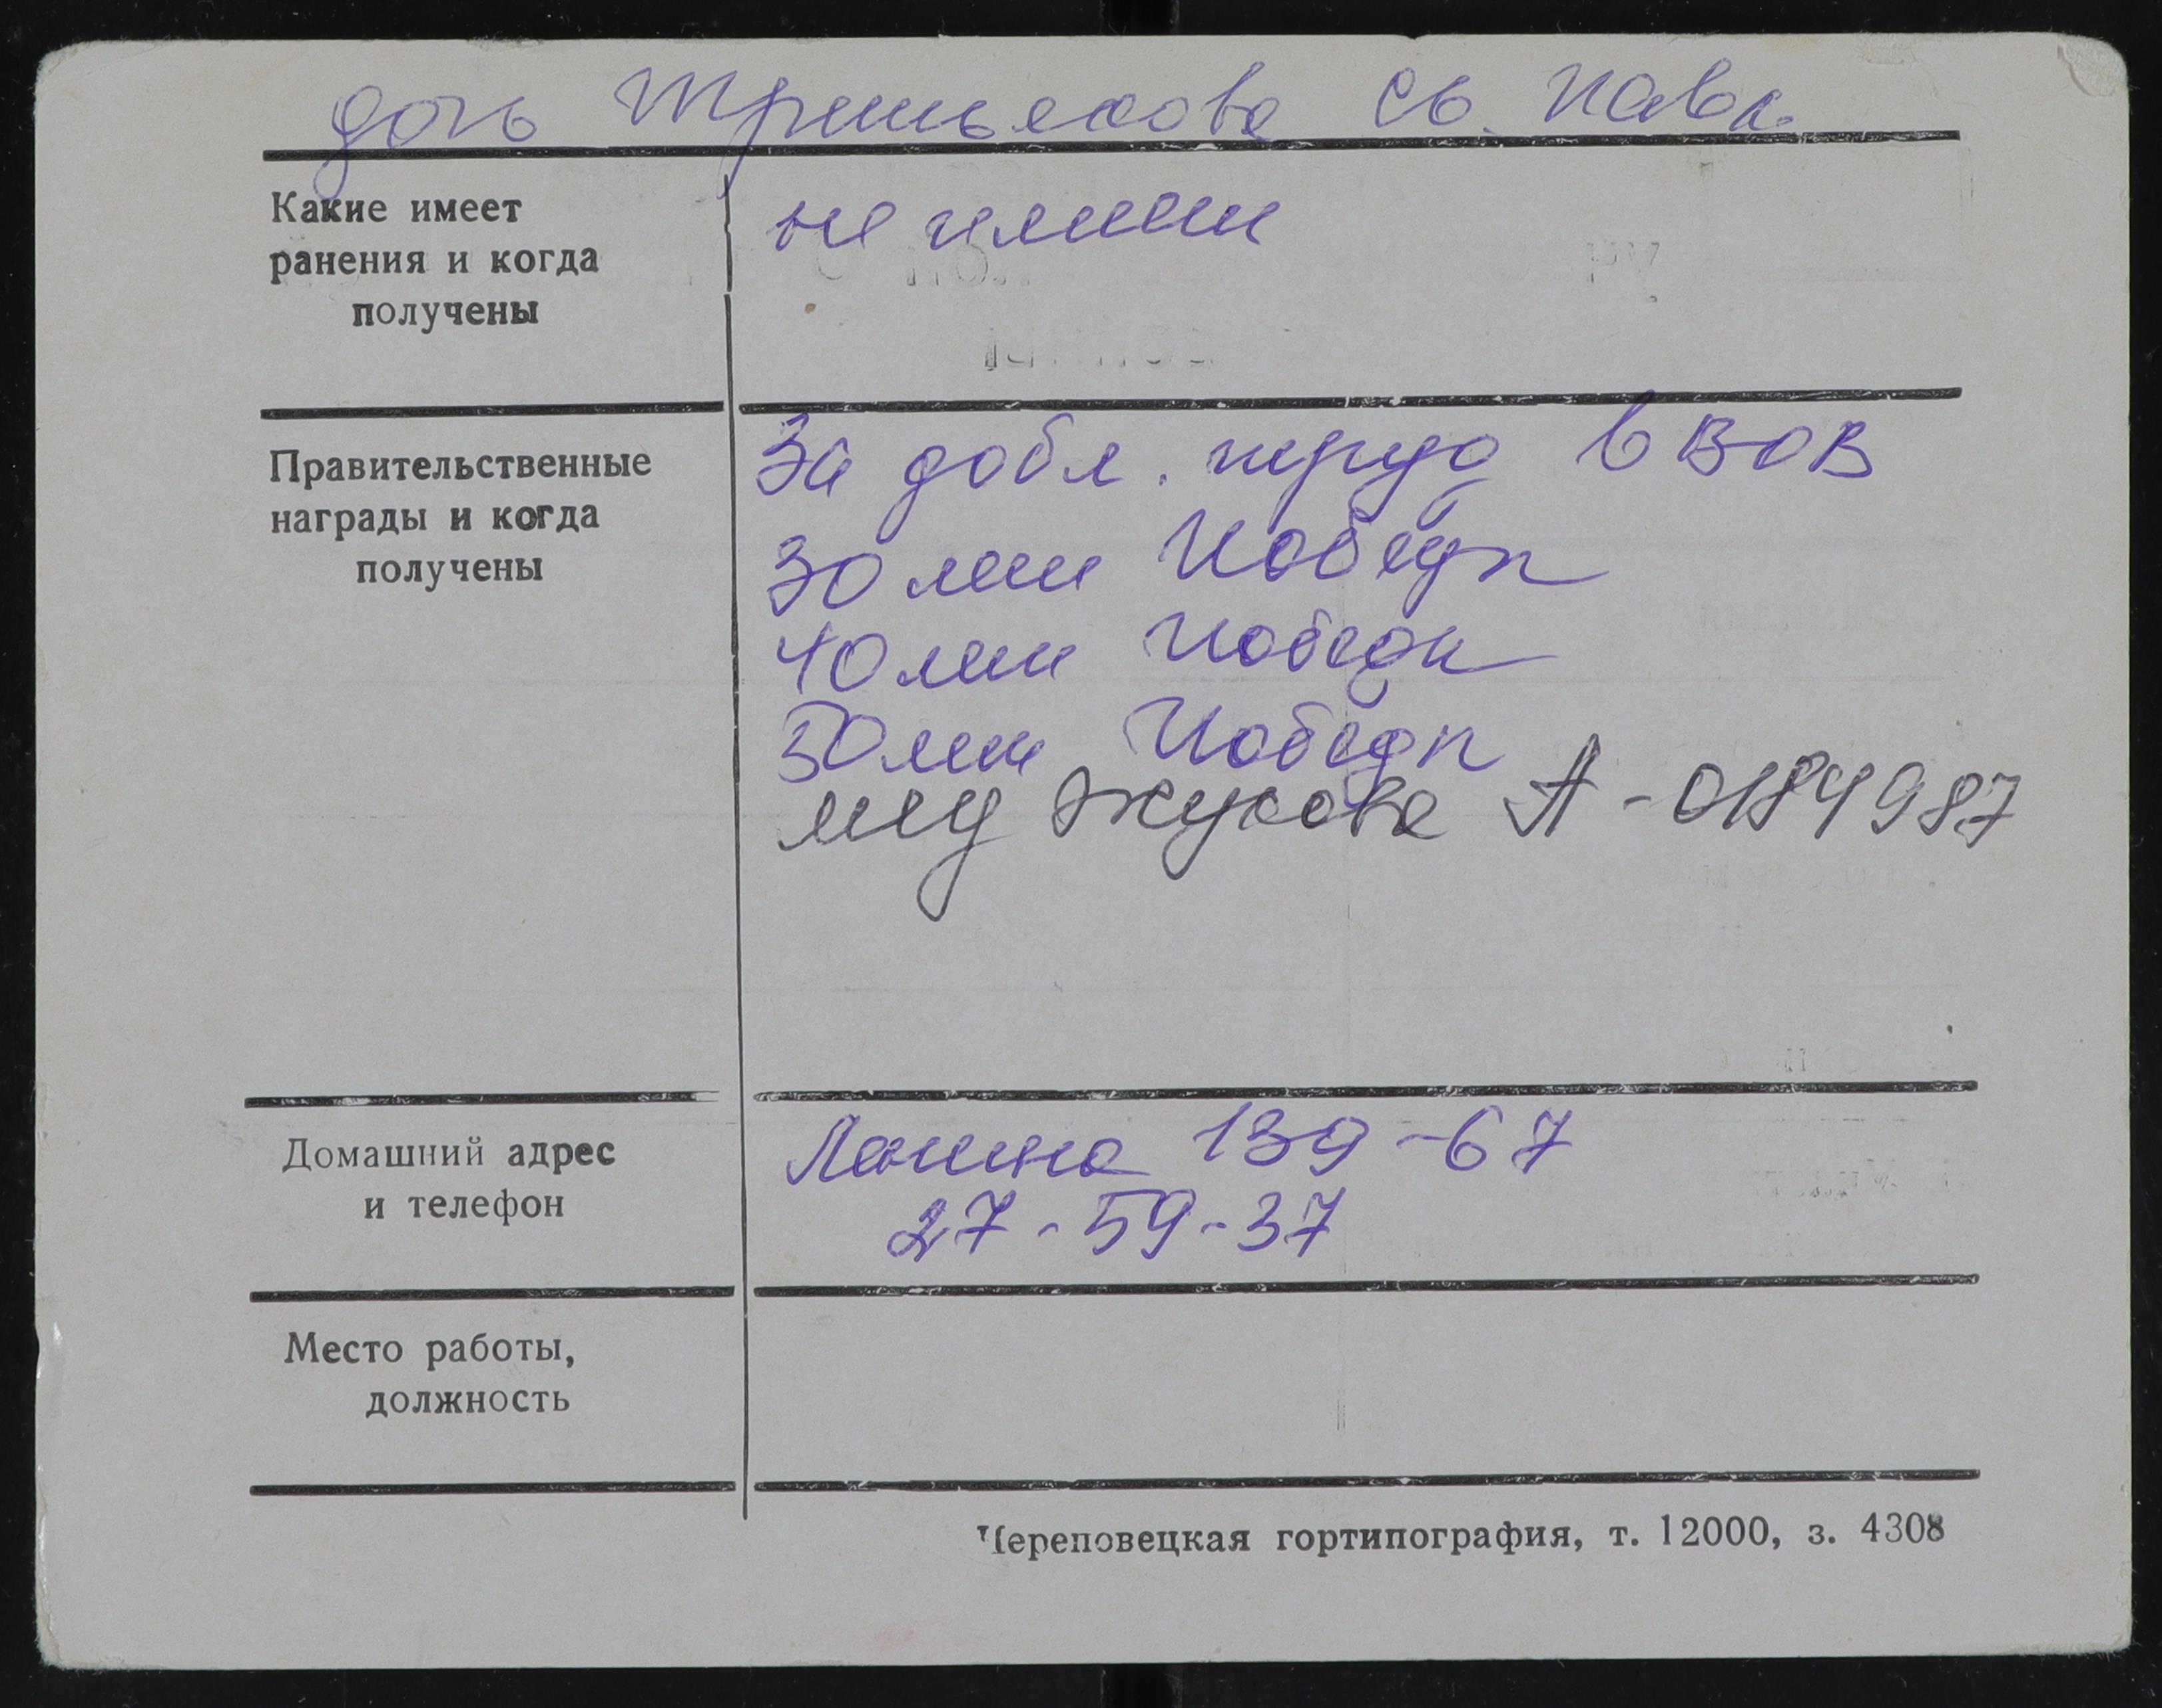 дочь Третьякова Св. Павл.
Какие имеет
ранения и когда
получены
не имеет
Правительственные
награды и когда
получены
За добл. труд в ВОВ
30 лет Победы
40 лет Победы
50 лет Победы
мед Жукова А-0184987
Домашний адрес
и телефон
Ленина 139-67
27-59-37
Место работы,
должность
Череповецкая гортипография, т. 12000, з. 4308